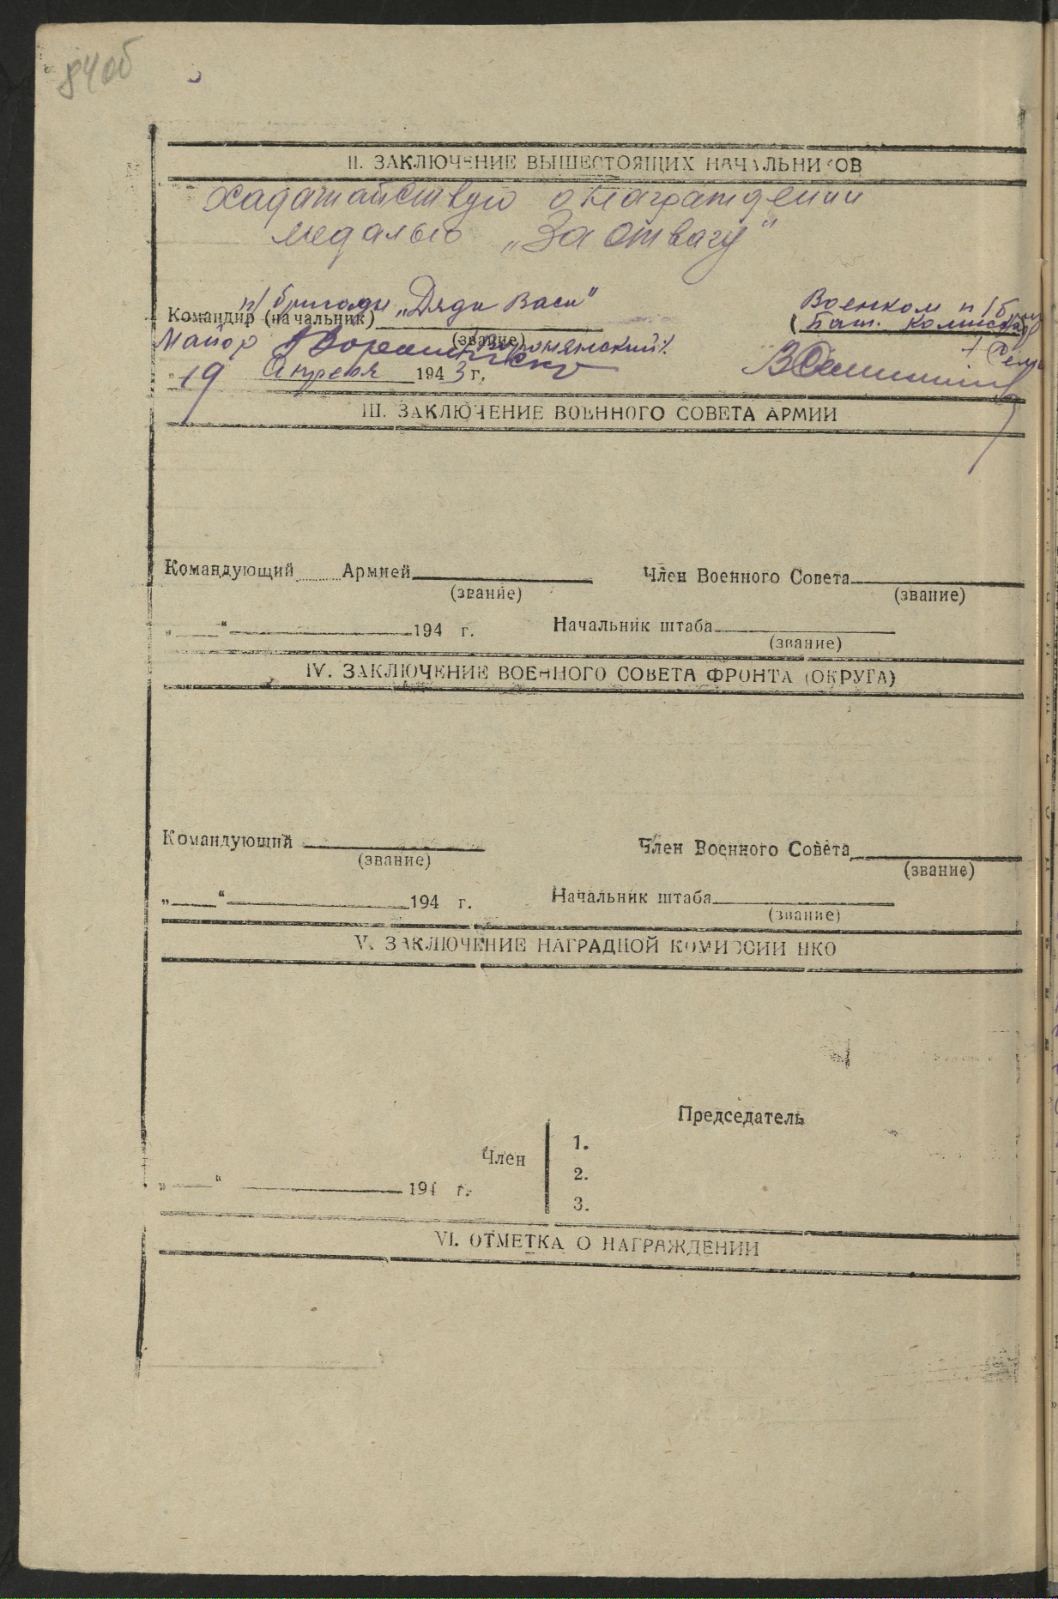 84об
II. ЗАКЛЮЧЕНИЕ ВЫШЕСТОЯЩИХ НАЧАЛЬНИКОВ
Хадатайствую о награждении
медалью „За отвагу“
п/бригады „Дяди Васи“
Военком п/
Командир (начальник)
(Бат. комиссар
Майор
(звание)
„19 Апреля 1943 г.
III. ЗАКЛЮЧЕНИЕ ВОЕННОГО СОВЕТА АРМИИ
Командующий Армией
Член Военного Совета
(звание)
(звание)
„ “ 194 г.
Начальник штаба
(звание)
IV. ЗАКЛЮЧЕНИЕ ВОЕННОГО СОВЕТА ФРОНТА (ОКРУГА)
Командующий
Член Военного Совета
(звание)
(звание)
„ “ 194 г.
Начальник штаба
(звание)
V. ЗАКЛЮЧЕНИЕ НАГРАДНОЙ КОМИССИИ НКО
Председатель
Член
1.
2.
3.
„ “ 194 г.
VI. ОТМЕТКА О НАГРАЖДЕНИИ